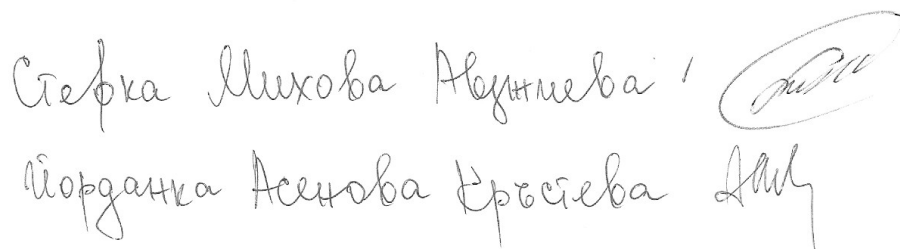 Стефка Михова Авджиева
Йорданка Асенова Кръстева